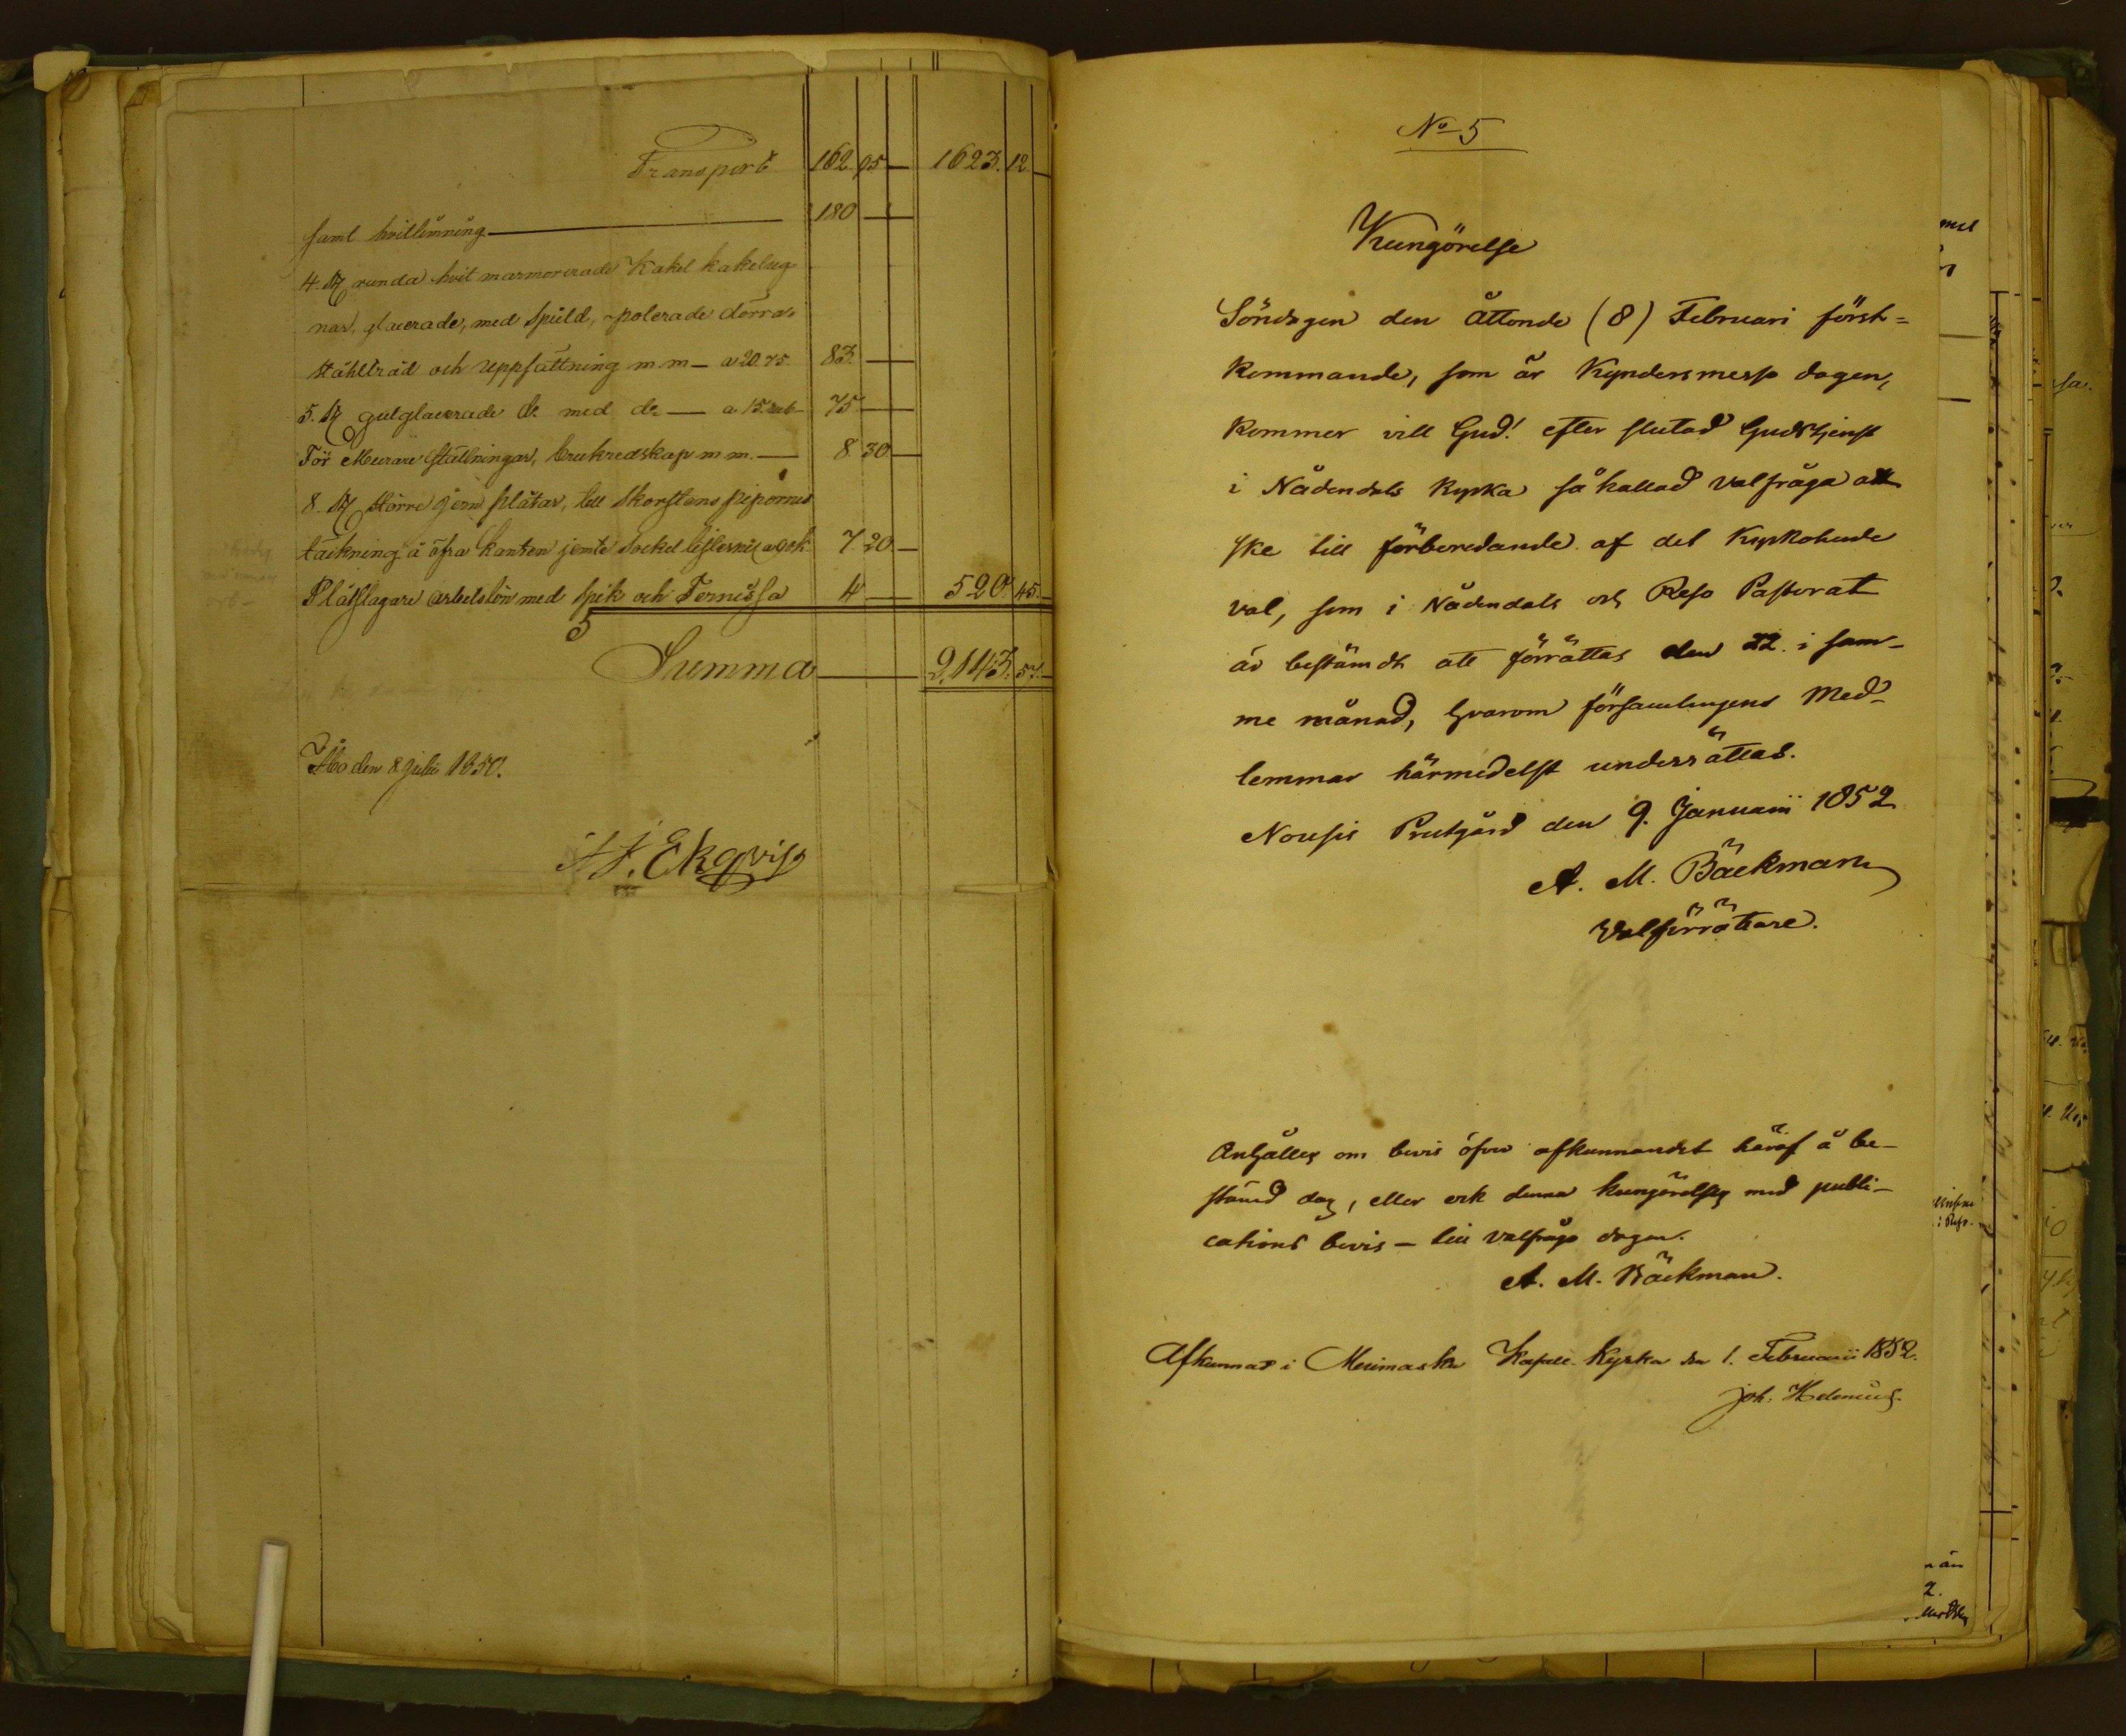 Transport 162. 95 — 1623. 12. —
samt hvitlimning — 180 —
4. St runda hvit marmorerade Kakel kakelug
nar, glacerade, med Spield, polerade dörrar
ståhltråd och uppsättning m m — a 20. 75. 83. —
5. St gulglacerade do med do — a 15. rub — 75 —
För Murare ställningar, brukredskap m m. — 8. 30 —
8. St större Jern plåtar, till Skorstens pipornes
täckning å öfra kanten jemte Sockel 7. 20 —
Plåtslagare arbetslön med Spik och Fernissa 4 — 520. 45. —
Summa — 2,143. 57. —
Åbo den 8 Julii 1850.
Ekqvist
No 5
Kungörelse
Söndagen den Åttonde (8) Februari först=
kommande, som är Kyndersmesso dagen,
kommer vill Gud! efter slutad Gudstjenst
i Nådendals kyrka så kallad valfråga att
ske till förberedande af det Kyrkoherde
val, som i Nådendals och Reso Pastorat
är bestämdt att förrättas den 22. i sam-
me månad, hvarom församlingens Med-
lemmar härmedelst underrättas.
Nousis Prestgård den 9. Januarii 1852
A. M. Bäckman
Valförrättare.
Anhålles om bevis öfver afkunnandet häraf å be-
stämd dag, eller ock denna kungörelse med publi-
cations bevis — till valfråge dagen.
A. M. Bäckman.
Afkunnad i Merimasku Kapell Kyrka den 1. Februarii 1852.
Joh. Helenius.